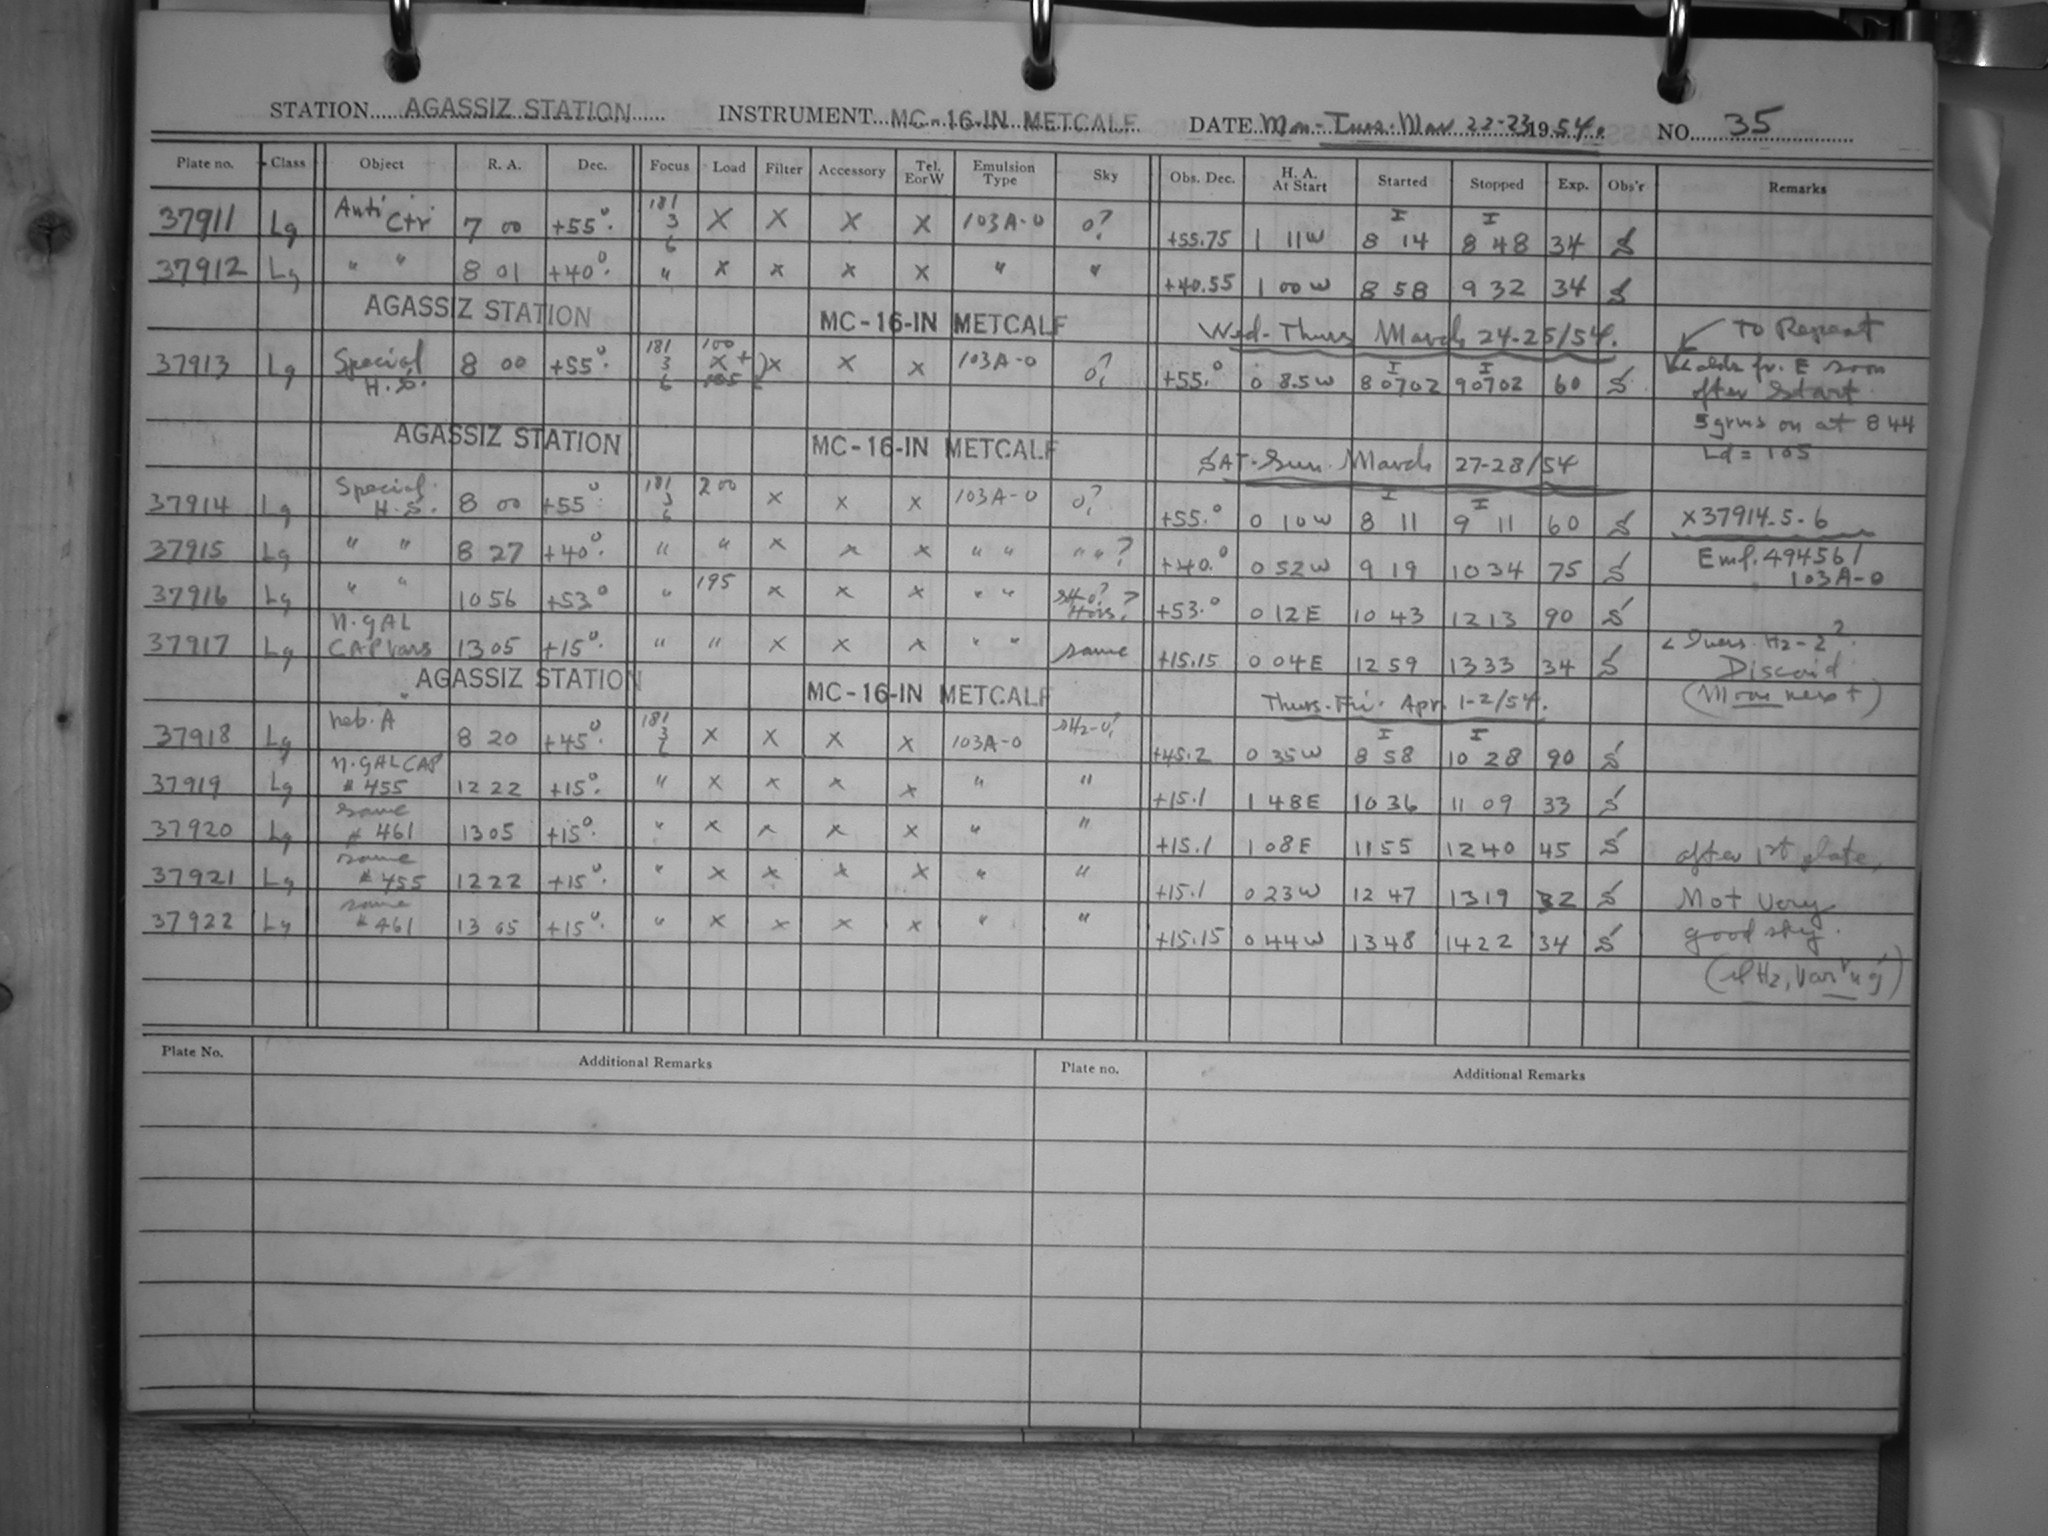 STATION AGASSIZ STATION INSTRUMENT MC-16-IN METCALF DATE Mon-Tues. Mar 22-23 1954. NO. 35
Plate no. Class Object R. A. Dec. Focus Load Filter Accessory Tel. E or W Emulsion Type Sky Obs. Dec. H. A. At Start Started Stopped Exp. Obs'r Remarks
37911 Lg Anti Ctr 7 00 +55°. 181 3 6 X X X X 103A-0 0? +55.75 1 11W I 8 14 I 8 48 34
37912 Lg " " 8 01 +40°. " X X X X " " +40.55 1 00 W 8 58 9 32 34
AGASSIZ STATION MC-16-IN METCALF Wed-Thurs March 24-25/54. To Repeat
37913 Lg Special H.S. 8 00 +55° 181 3 6 100 X + X X X 103A-0 0? +55.° 0 8.5W I 8 07 02 I 9 07 02 60 fr. E soon
after Start
5 grms on at 8 44
Ld = 105
AGASSIZ STATION MC-16-IN METCALF SAT-Sun. March 27-28/54
37914 Lg Special H.S. 8 00 +55° 181 3 6 200 X X X 103A-0 0? +55.° 0 10W I 8 11 I 9 11 60 X37914-5-6
37915 Lg " " 8 27 +40°. " " X X X " " " "? +40.° 0 52W 9 19 10 34 75 Eml. 494561
103A-0
37916 Lg " " 10 56 +53° " 195 X X X " " +53.° 0 12E 10 43 12 13 90
37917 Lg n. GAL CAP Vars 13 05 +15°. " " X X X " " same +15.15 0 04E 12 59 13 33 34
Discard
(Moon next)
AGASSIZ STATION MC-16-IN METCALF Thurs-Fri. Apr. 1-2/54.
37918 Lg neb. A 8 20 +45°. 181 3 6 X X X X 103A-0 +45.2 0 35W I 8 58 I 10 28 90
37919 Lg n. GAL CAP # 455 12 22 +15°. " X X X X " " +15.1 1 48E 10 36 11 09 33
37920 Lg same # 461 13 05 +15°. " X X X X " " +15.1 1 08E 11 55 12 40 45 after 1st plate,
37921 Lg same # 455 12 22 +15°. " X X X X " " +15.1 0 23W 12 47 13 19 32 Not Very
37922 Lg same # 461 13 05 +15°. " X X X X " " +15.15 0 44W 13 48 14 22 34 good sky.
Plate No. Additional Remarks Plate no. Additional Remarks